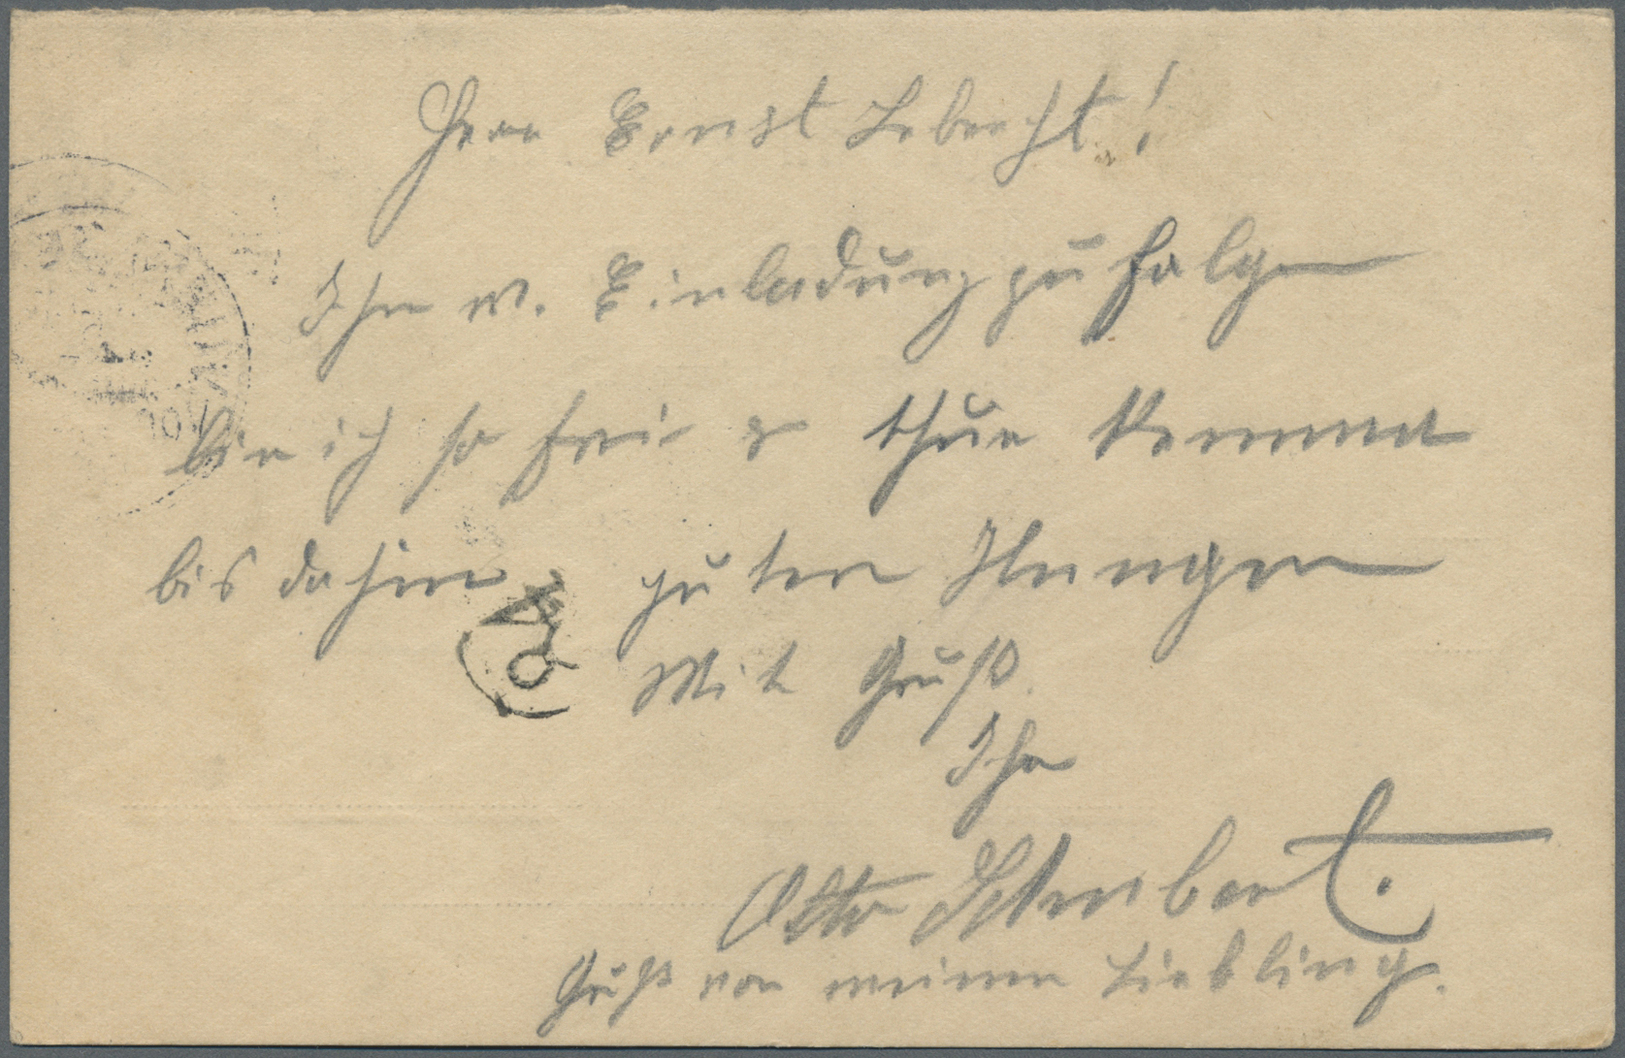 Herr Ernst Lebrecht!
Ihr w. Einladung zu folgen
bin ich so frei & thue
bis dahin guten
Mit Gruß.
Ihr
Otto
Gruß von meinem Liebling.